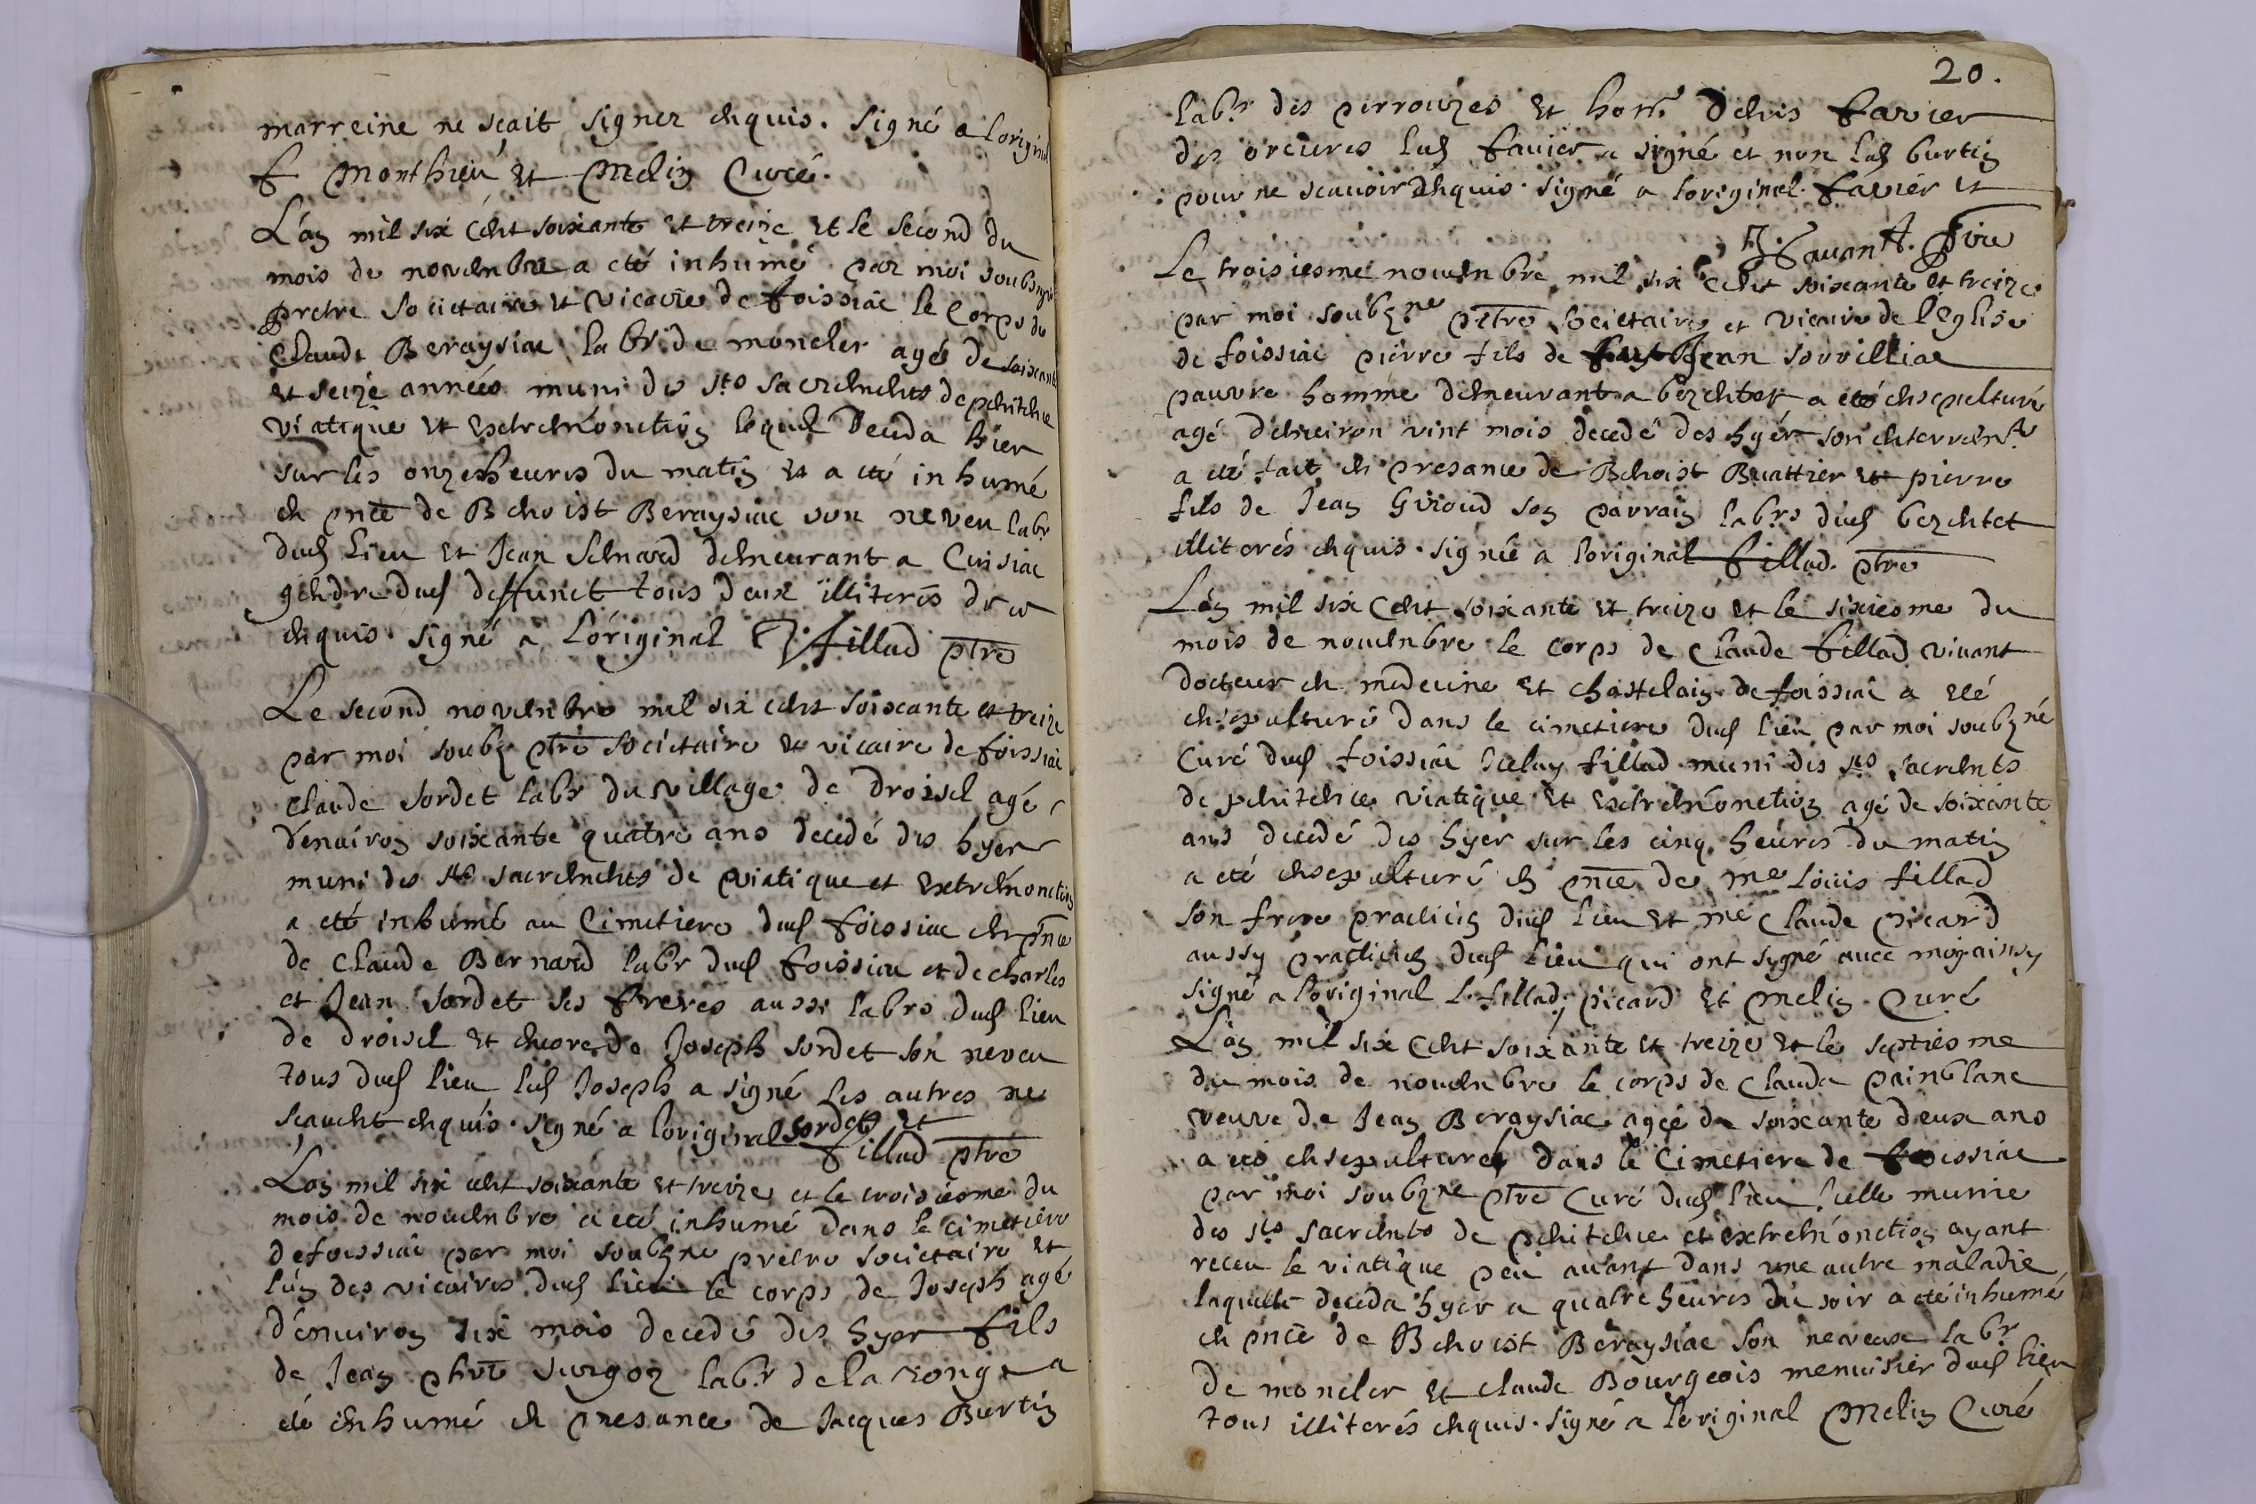 marreine ne sçait signer enquis. signé a loriginal
f monthieu et Melin Curé.
L'an mil six cent soixante et treize et le second du
mois de novembre a eté inhumé par moi soubsigné
pretre societaire et vicaire de foissiac le corps de
Claude Beraysiac labr de moncler agé de soixante
et seize années muni des sts sacrements de penitence
viatique et extremonction lequel deceda hier
sur les onze heures du matin et a eté inhumé
en pnce de Benoist Beraysiac son neveu labr
dud lieu et Jean demeurant a Cuisiac
gendre dud deffunct tous deux illiterés de ce
enquis. signé a l'original fillod ptre
Le second novembre mil six cent soixante et treize
par moi soubz ptre societaire et vicaire de foissiac
claude sordet labr du village de droisel agé
denairon soixante quatre ans decedé des hyer
muni des sts sacrements de viatique et extremonction
a eté inhumé au Cimetiere dud foissiac en pnce
de Claude Bernard labr dud foissiac et de charles
et Jean sordet ses freres aussi labrs dud lieu
de droisel et encore de Joseph sordet son neveu
tous dud lieu led Joseph a signé les autres ne
scauent enquis. signé a loriginal sordet et
fillod ptre
Lan mil six cent soixante et treize et le troisiesme du
mois de novembre a eté inhumé dans le cimetiere
de foissiac par moi soubzne pretre societaire et
lun des vicaires dud lieu le corps de Joseph agé
d'enuiron six mois decedé des hyer fils
de Jean surgon labr de la ronge a
eté inhumé en presance de Jacques Burtin
20.
labr des perrouzes et hon denis favier
des orcures led fauier a signé et non led burtin
pour ne scauoir enquis. signé a loriginal. favier et
Savant. ptre
Le troisiesme novembre mil six cent soixante et treize
par moi soubzne ptre societaire et vicaire de l'Eglise
de foissiac pierre fils de Jean souvilliac
pauvre homme demeurant a bezentet a eté ensepulturé
agé denuiron vint mois decedé des hyer son enterremt
a eté fait en presance de Benoist Buattier et pierre
fils de Jean Giroud son parrain labrs dud bezentet
illiterés enquis. signé a loriginal fillod. ptre
Lan mil six cent soixante et treize et le sixiesme du
mois de nouembre le corps de Claude fillod vivant
docteur en medecine et chastelain de foissiac a eté
ensepulturé dans le cimetiere dud lieu par moi soubzné
Curé dud foissiac Icelay fillod muni des sts sacrents
de penitence viatique et extremonction agé de soixante
ans decedé des hyer sur les cinq heures du matin
a eté ensepulturé en pnce de me Loüis fillod
son frere practicien dud lieu et me Claude picard
aussy practicien dud lieu qui ont signé auec moy ainsy
signé a l'original L. fillod, picard et Melin Curé
L'an mil six cent soixante et treize et le septiesme
du mois de nouembre le corps de Clauda painblanc
veuve de Jean Beraysiac agée de soixante deux ans
a eté ensepulturé dans le Cimetiere de foissiac
par moi soubzne ptre Curé dud lieu Icelle munie
des sts sacrents de penitence et extremonction ayant
receu le viatique peu auant dans une autre maladie
laquelle deceda hyer a quatre heures du soir a eté inhumé
en pnce de Benoist Beraysiac son neveux labr
de moncler et claude Bourgeois menuisier dud lieu
tous illiterés enquis. signé a loriginal Melin Curé